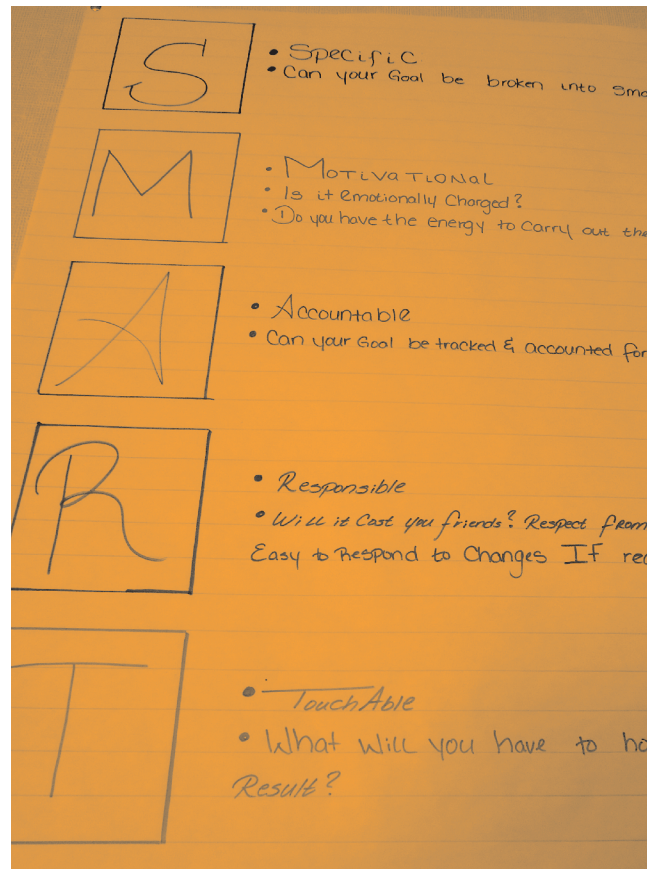 S
• Specific
• Can your Goal be broken into sma
M
• Motivational
• Is it emotionally Charged?
• Do you have the energy to Carry out the
A
• Accountable
• Can your Goal be tracked & accounted for
R
• Responsible
• Will it Cost you friends? Respect from
Easy to Respond to Changes If rec
T
• TouchAble
• What will you have to ho
Result?